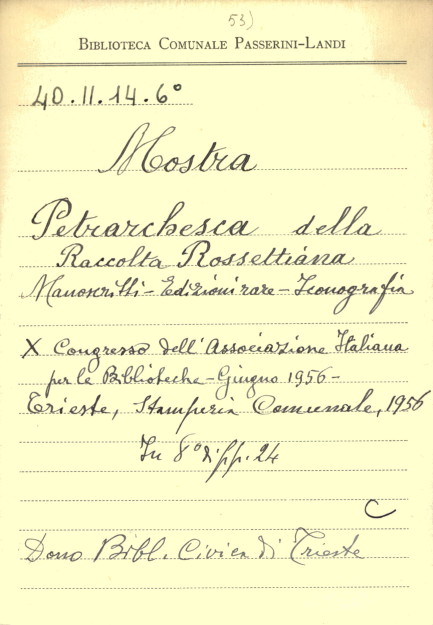 53)
BIBLIOTECA COMUNALE PASSERINI-LANDI
40.II.14.6°
Mostra
Petrarchesca della
Raccolta Rossettiana
Manoscritti - Edizioni rare - Iconografia
X Congresso dell'Associazione Italiana
per le Biblioteche - Giugno 1956 -
Trieste, Stamperia Comunale, 1956
In 8° di pp. 24
C
Dono Bibl. Civica di Trieste